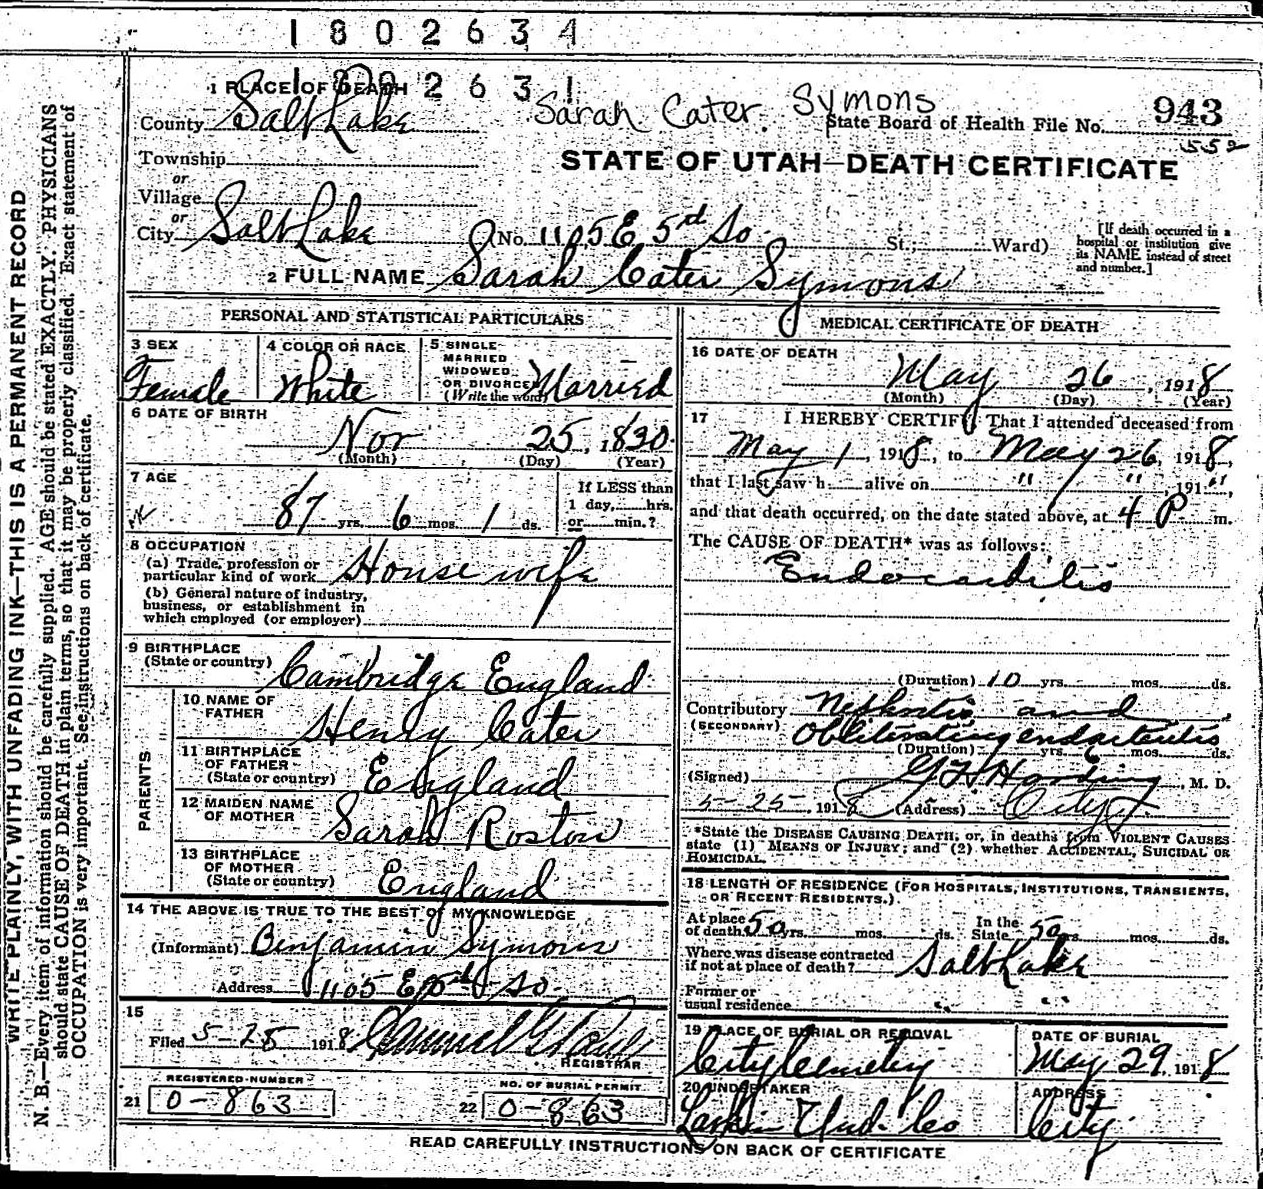 1802634
1 PLACE OF DEATH
1802631
County Salt Lake
Sarah Cater Symons
State Board of Health File No. 943
552
Township
or
Village
or
City Salt Lake
STATE OF UTAH—DEATH CERTIFICATE
(No. 1105 E 5rd So. St.; Ward)
[If death occurred in a hospital or institution give its NAME instead of street and number.]
2 FULL NAME Sarah Cater Symons
PERSONAL AND STATISTICAL PARTICULARS
3 SEX
Female
4 COLOR OR RACE
White
5 SINGLE
MARRIED
WIDOWED
OR DIVORCED
(Write the word)
Married
6 DATE OF BIRTH
Nov 25, 1830
(Month) (Day) (Year)
7 AGE
87 yrs. 6 mos. 1 ds.
If LESS than
1 day, hrs.
or min.?
8 OCCUPATION
(a) Trade, profession or
particular kind of work House wife
(b) General nature of industry,
business, or establishment in
which employed (or employer)
9 BIRTHPLACE
(State or country) Cambridge England
PARENTS
10 NAME OF
FATHER Henry Cater
11 BIRTHPLACE
OF FATHER
(State or country) England
12 MAIDEN NAME
OF MOTHER Sarah Roston
13 BIRTHPLACE
OF MOTHER
(State or country) England
14 THE ABOVE IS TRUE TO THE BEST OF MY KNOWLEDGE
(Informant) Benjamin Symons
Address 1105 E 5rd So.
15
Filed 5-28 1918
REGISTRAR
REGISTERED NUMBER
21 0-863
NO. OF BURIAL PERMIT
22 0-863
MEDICAL CERTIFICATE OF DEATH
16 DATE OF DEATH
May 26, 1918
(Month) (Day) (Year)
17 I HEREBY CERTIFY, That I attended deceased from
May 1, 1918, to May 26, 1918,
that I last saw h alive on " ", 191"
and that death occurred, on the date stated above, at 4 P m.
The CAUSE OF DEATH* was as follows:
Endocarditis
(Duration) 10 yrs. mos. ds.
Contributory Nephritis and
(SECONDARY) Obliterating endarteritis
(Duration) yrs. 6 mos. ds.
(Signed) G H Harding, M. D.
5-25, 1918 (Address) City
*State the DISEASE CAUSING DEATH, or, in deaths from VIOLENT CAUSES
state (1) MEANS OF INJURY; and (2) whether ACCIDENTAL, SUICIDAL OR
HOMICIDAL.
18 LENGTH OF RESIDENCE (FOR HOSPITALS, INSTITUTIONS, TRANSIENTS,
OR RECENT RESIDENTS.).
At place
of death 50 yrs. mos. ds.
In the
State 50 yrs. mos. ds.
Where was disease contracted
if not at place of death? Salt Lake
Former or
usual residence " "
19 PLACE OF BURIAL OR REMOVAL
City Cemetery
DATE OF BURIAL
May 29, 1918
20 UNDERTAKER
Larkin Und. Co
ADDRESS
City
READ CAREFULLY INSTRUCTIONS ON BACK OF CERTIFICATE
WRITE PLAINLY, WITH UNFADING INK—THIS IS A PERMANENT RECORD
N. B.—Every item of information should be carefully supplied. AGE should be stated EXACTLY. PHYSICIANS
should state CAUSE OF DEATH in plain terms, so that it may be properly classified. Exact statement of
OCCUPATION is very important. See instructions on back of certificate.